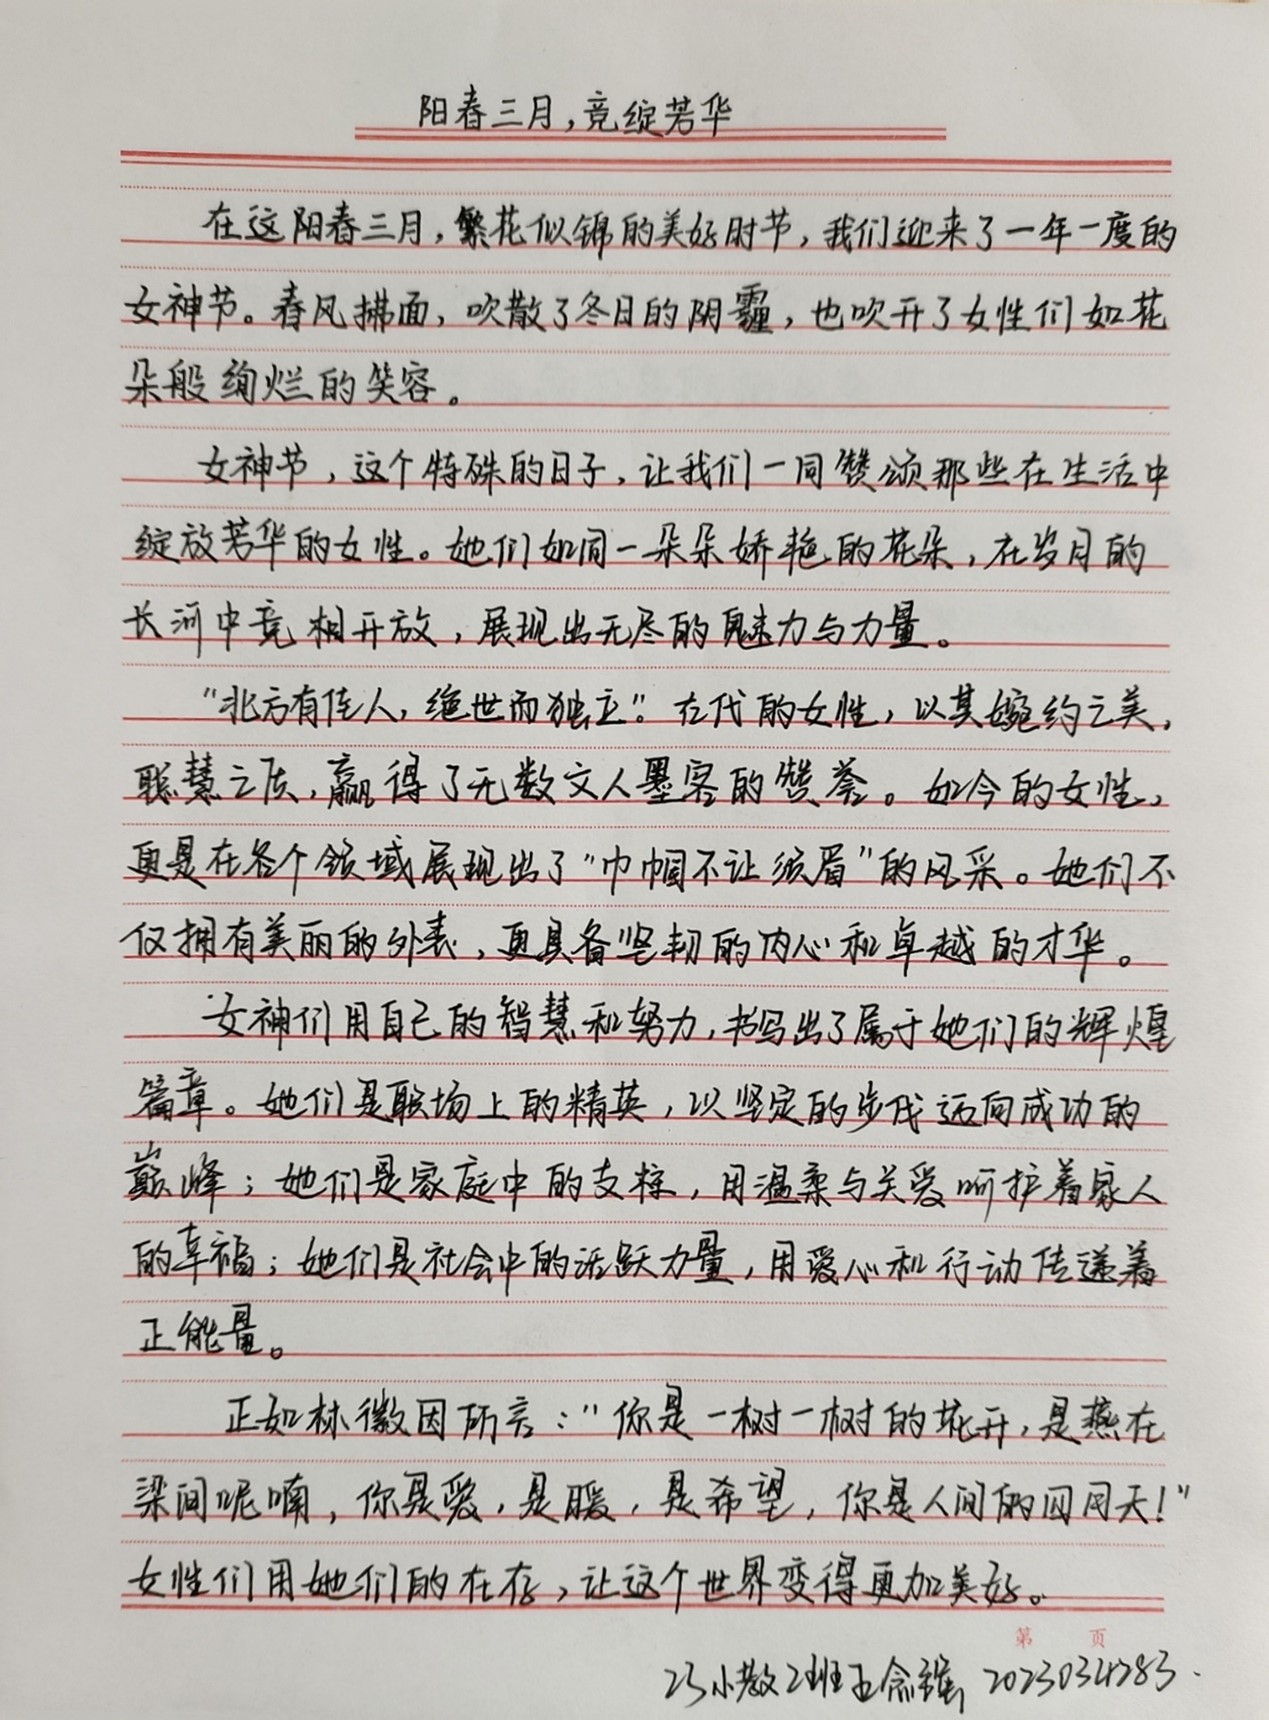 阳春三月，竞绽芳华
在这阳春三月，繁花似锦的美好时节，我们迎来了一年一度的
女神节。春风拂面，吹散了冬日的阴霾，也吹开了女性们如花
朵般绚烂的笑容。
女神节，这个特殊的日子，让我们一同赞颂那些在生活中
绽放芳华的女性。她们如同一朵朵娇艳的花朵，在岁月的
长河中竞相开放，展现出无尽的魅力与力量。
“北方有佳人，绝世而独立”。在代的女性，以其婉约之美，
聪慧之质，赢得了无数文人墨客的赞誉。如今的女性，
更是在各个领域展现出了“巾帼不让须眉”的风采。她们不
仅拥有美丽的外表，更具备坚韧的内心和卓越的才华。
女神们用自己的智慧和努力，书写出了属于她们的辉煌
篇章。她们是职场上的精英，以坚定的步伐迈向成功的
巅峰；她们是家庭中的支柱，用温柔与关爱呵护着家人
的幸福；她们是社会中的活跃力量，用爱心和行动传递着
正能量。
正如林徽因所言：“你是一树一树的花开，是燕在
梁间呢喃，你是爱，是暖，是希望，你是人间的四月天！”
女性们用她们的在存，让这个世界变得更加美好。
第 页
23小教2班 2023034283